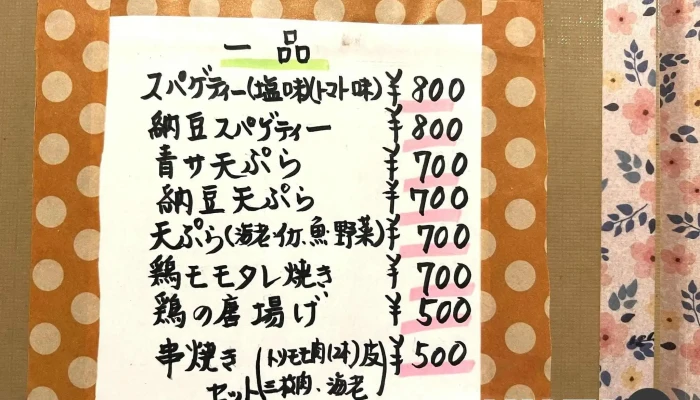 一品
スパゲティー(塩味)(トマト味) ¥800
納豆スパゲティー ¥800
青サ天ぷら ¥700
納豆天ぷら ¥700
天ぷら(海老・イカ、魚・野菜) ¥700
鶏モモタレ焼き ¥700
鶏の唐揚げ ¥500
串焼き(トリモモ肉(2本)皮 ¥500
セット 三枚肉、海老)